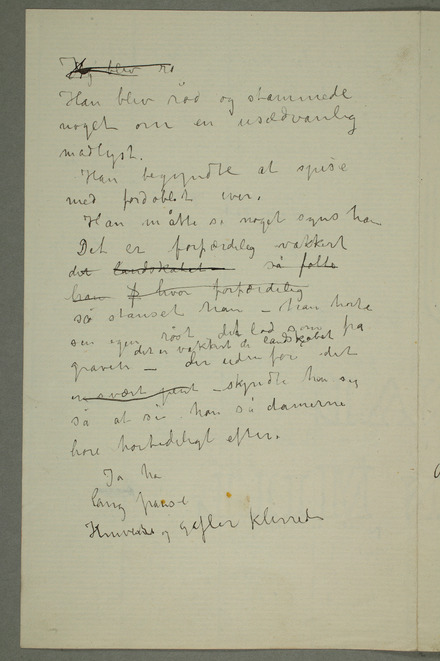 Jeg blev rø
Han blev rød og stammede
noget om en usædvanlig
madlyst.
Han begyndte at spise
med fordoblet iver.
Han måtte si noget syns han
Det er forfærdelig vakkert
det landskabet så følte
han hvor forfærdelig
så stanset han – han hørte
sin egen røst det lød som fra
graven – det er vakkert det landskabet
der ude for det
er svært pent – skyndte han sig
så at si han så damerne
høre
efter.
Ja ha
lang pause
Knivene og gafler klirred